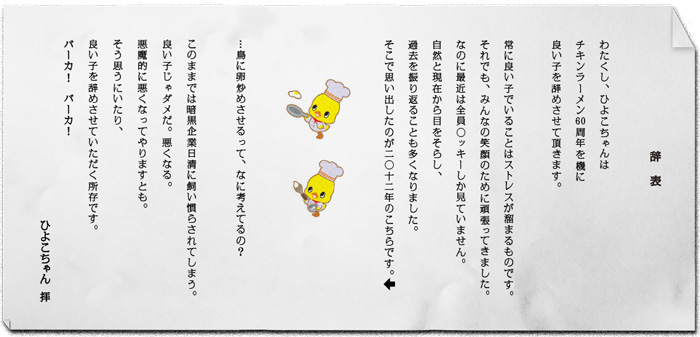 辞表
わたくし、ひよこちゃんは
チキンラーメン60周年を機に
良い子を辞めさせて頂きます。
常に良い子でいることはストレスが溜まるものです。
それでも、みんなの笑顔のために頑張ってきました。
なのに最近は全員〇ッキーしか見ていません。
自然と現在から目をそらし、
過去を振り返ることも多くなりました。
そこで思い出したのが二〇十二年のこちらです。⬅
…鳥に卵炒めさせるって、なに考えてるの？
このままでは暗黒企業日清に飼い慣らされてしまう。
良い子じゃダメだ。悪くなる。
悪魔的に悪くなってやりますとも。
そう思うにいたり、
良い子を辞めさせていただく所存です。
バーカ！　バーカ！
ひよこちゃん 拝